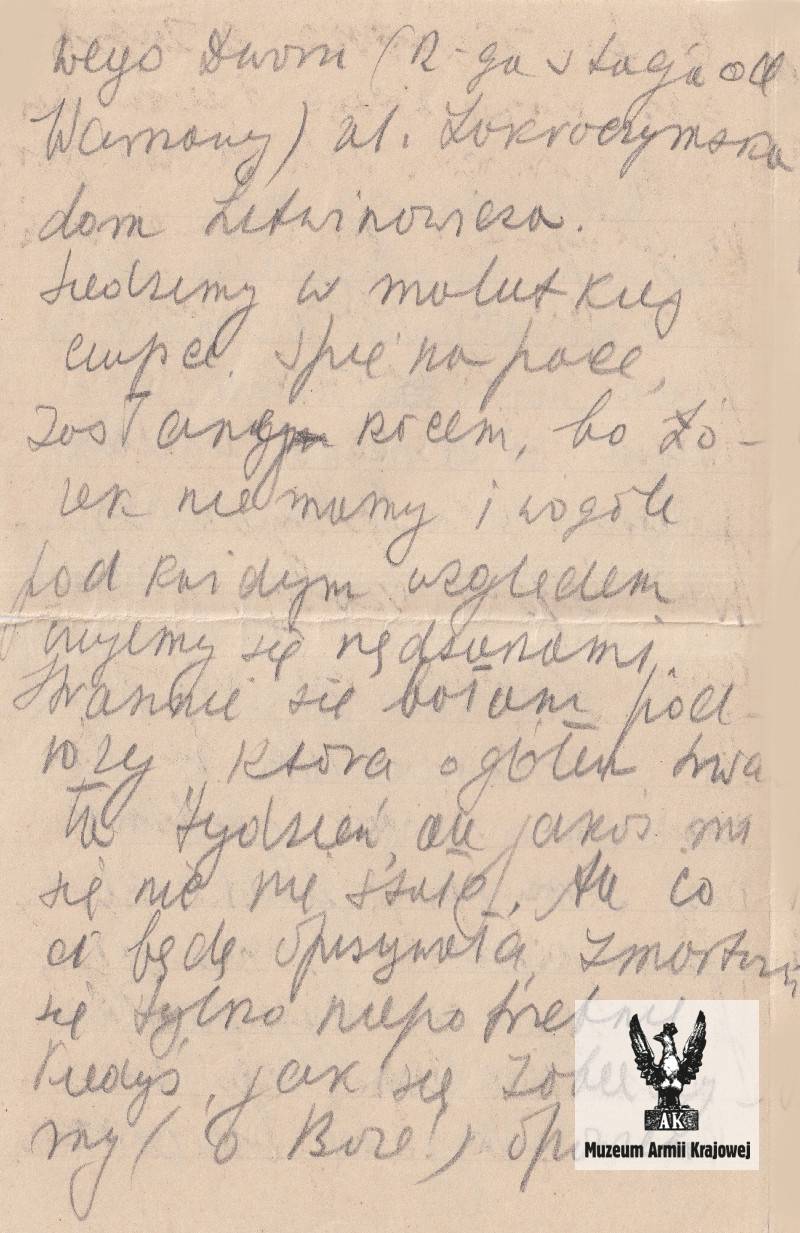 wego Dworu (2-ga stacja od
Warszawy) ul. Zakroczymska
dom Litwinowicza.
Siedzimy w malutkiej
ciupce. Śpię na pace,
kocem, bo łó-
żek nie mamy i wogóle
pod każdym względem
czujemy się nędzarzami.
Strasznie się bałam pod-
róży, która ogółem trwa
ła tydzień, ale jakoś mi
się nic nie stało. Ale co
ci będę opisywała, zmartwisz
się tylko niepotrzebnie
Kiedyś, jak się zobaczy-
my (o Boże!)
AK
Muzeum Armii Krajowej